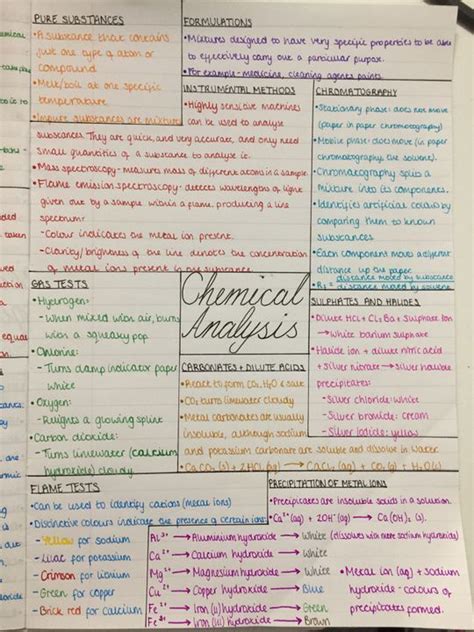 PURE SUBSTANCES
• A substance that contains
just one type of atom or
compound
• Melt/boil at one specific
temperature
• Impure substances are mixtures
FORMULATIONS
• Mixtures designed to have very specific properties to be able
to effectively carry out a particular purpose.
• For example - medicine, cleaning agents, paints.
INSTRUMENTAL METHODS
• Highly sensitive machines
can be used to analyse
substances. They are quick, and very accurate, and only need
small quantities of a substance to analyse it.
• Mass spectroscopy - measures mass of different atoms in a sample.
• Flame emission spectroscopy - detects wavelengths of light
given out by a sample within a flame, producing a line
spectrum:
- Colour indicates the metal ion present.
- Clarity/brightness of the line denotes the concentration
of metal ions present in the substance
CHROMATOGRAPHY
• Stationary phase: does not move
(paper in paper chromatography)
• Mobile phase: does move (in paper
chromatography, the solvent).
• Chromatography splits a
mixture into its components.
• Identifies artificial colours by
comparing them to known
substances
• Each component moves a different
distance up the paper
• Rf = distance moved by substance
distance moved by solvent
GAS TESTS
• Hydrogen:
- When mixed with air, burns
with a squeaky pop
• Chlorine:
- Turns damp indicator paper
White
• Oxygen:
- Relights a glowing splint
• Carbon dioxide:
- Turns limewater (calcium
hydroxide) cloudy
Chemical
Analysis
SULPHATES AND HALIDES
• Dilute HCl + Cl2Ba + Sulphate Ion
→ White barium sulphate
• Halide ion + dilute nitric acid
+ Silver nitrate → silver halide
precipitates:
- Silver chloride: White
- Silver bromide: cream
- Silver Iodide: yellow
CARBONATES + DILUTE ACIDS
• React to form CO2, H2O & salt
• CO2 turns limewater cloudy
• Metal carbonates are usually
insoluble, although sodium
and potassium carbonate are soluble and dissolve in water
• CaCO3 (s) + 2HCl (aq) → CaCl2 (aq) + CO2 (g) + H2O (l)
FLAME TESTS
• Can be used to identify cations (metal ions)
• Distinctive colours indicate the presence of certain ions:
- Yellow for Sodium
- Lilac for potassium
- Crimson for lithium
- Green for copper
- Brick red for Calcium
PRECIPITATION OF METAL IONS
• Precipitates are insoluble solids in a solution.
• Ca2+ (aq) + 2OH- (aq) → Ca(OH)2 (s)
Al3+ → Aluminium hydroxide → White (dissolves with more sodium hydroxide)
Ca2+ → Calcium hydroxide → White
Mg2+ → Magnesium hydroxide → White
Cu2+ → Copper hydroxide → Blue
Fe2+ → Iron (II) hydroxide → Green
Fe3+ → Iron (III) hydroxide → Brown
• Metal ion (aq) + sodium
hydroxide - colours of
precipitates formed.